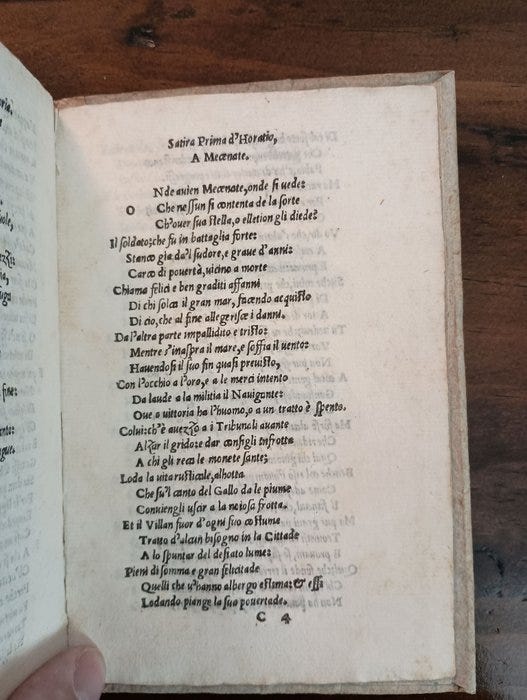 Satira Prima d'Horatio,
A Mecenate.
O Nde avien Mecenate, onde si vede:
Che nessun si contenta de la sorte
Ch'over sua stella, o elletion gli diede?
Il soldato: che fu in battaglia forte:
Stanco gia da'l sudore, e grave d'anni:
Carco di povertà, vicino a morte
Chiama felici e ben graditi affanni
Di chi solca il gran mar, facendo acquisto
Di cio, che al fine allegerisce i danni.
Da l'altra parte impallidito e tristo:
Mentre s'inaspra il mare, e soffia il uento:
Havendosi il suo fin quasi previsto,
Con l'occhio a l'oro, e a le merci intento
Da laude a la militia il Navigante:
Ove o vittoria ha l'huomo, o a un tratto è spento.
Colui: ch'è avezzo a i Tribunoli avante
Alzar il grido: e dar consigli infrotta
A chi gli reca le monete sante;
Loda la vita rusticale, alhotta
Che su'l canto del Gallo da le piume
Conviengli uscir a la noiosa frotta.
Et il Villan fuor d'ogni suo costume
Tratto d'alcun bisogno in la Cittade
A lo spuntar del desiato lume:
Pieni di somma e gran felicitade
Quelli che v'hanno albergo estima: & essi
Lodando piange la sua povertade.
C 4